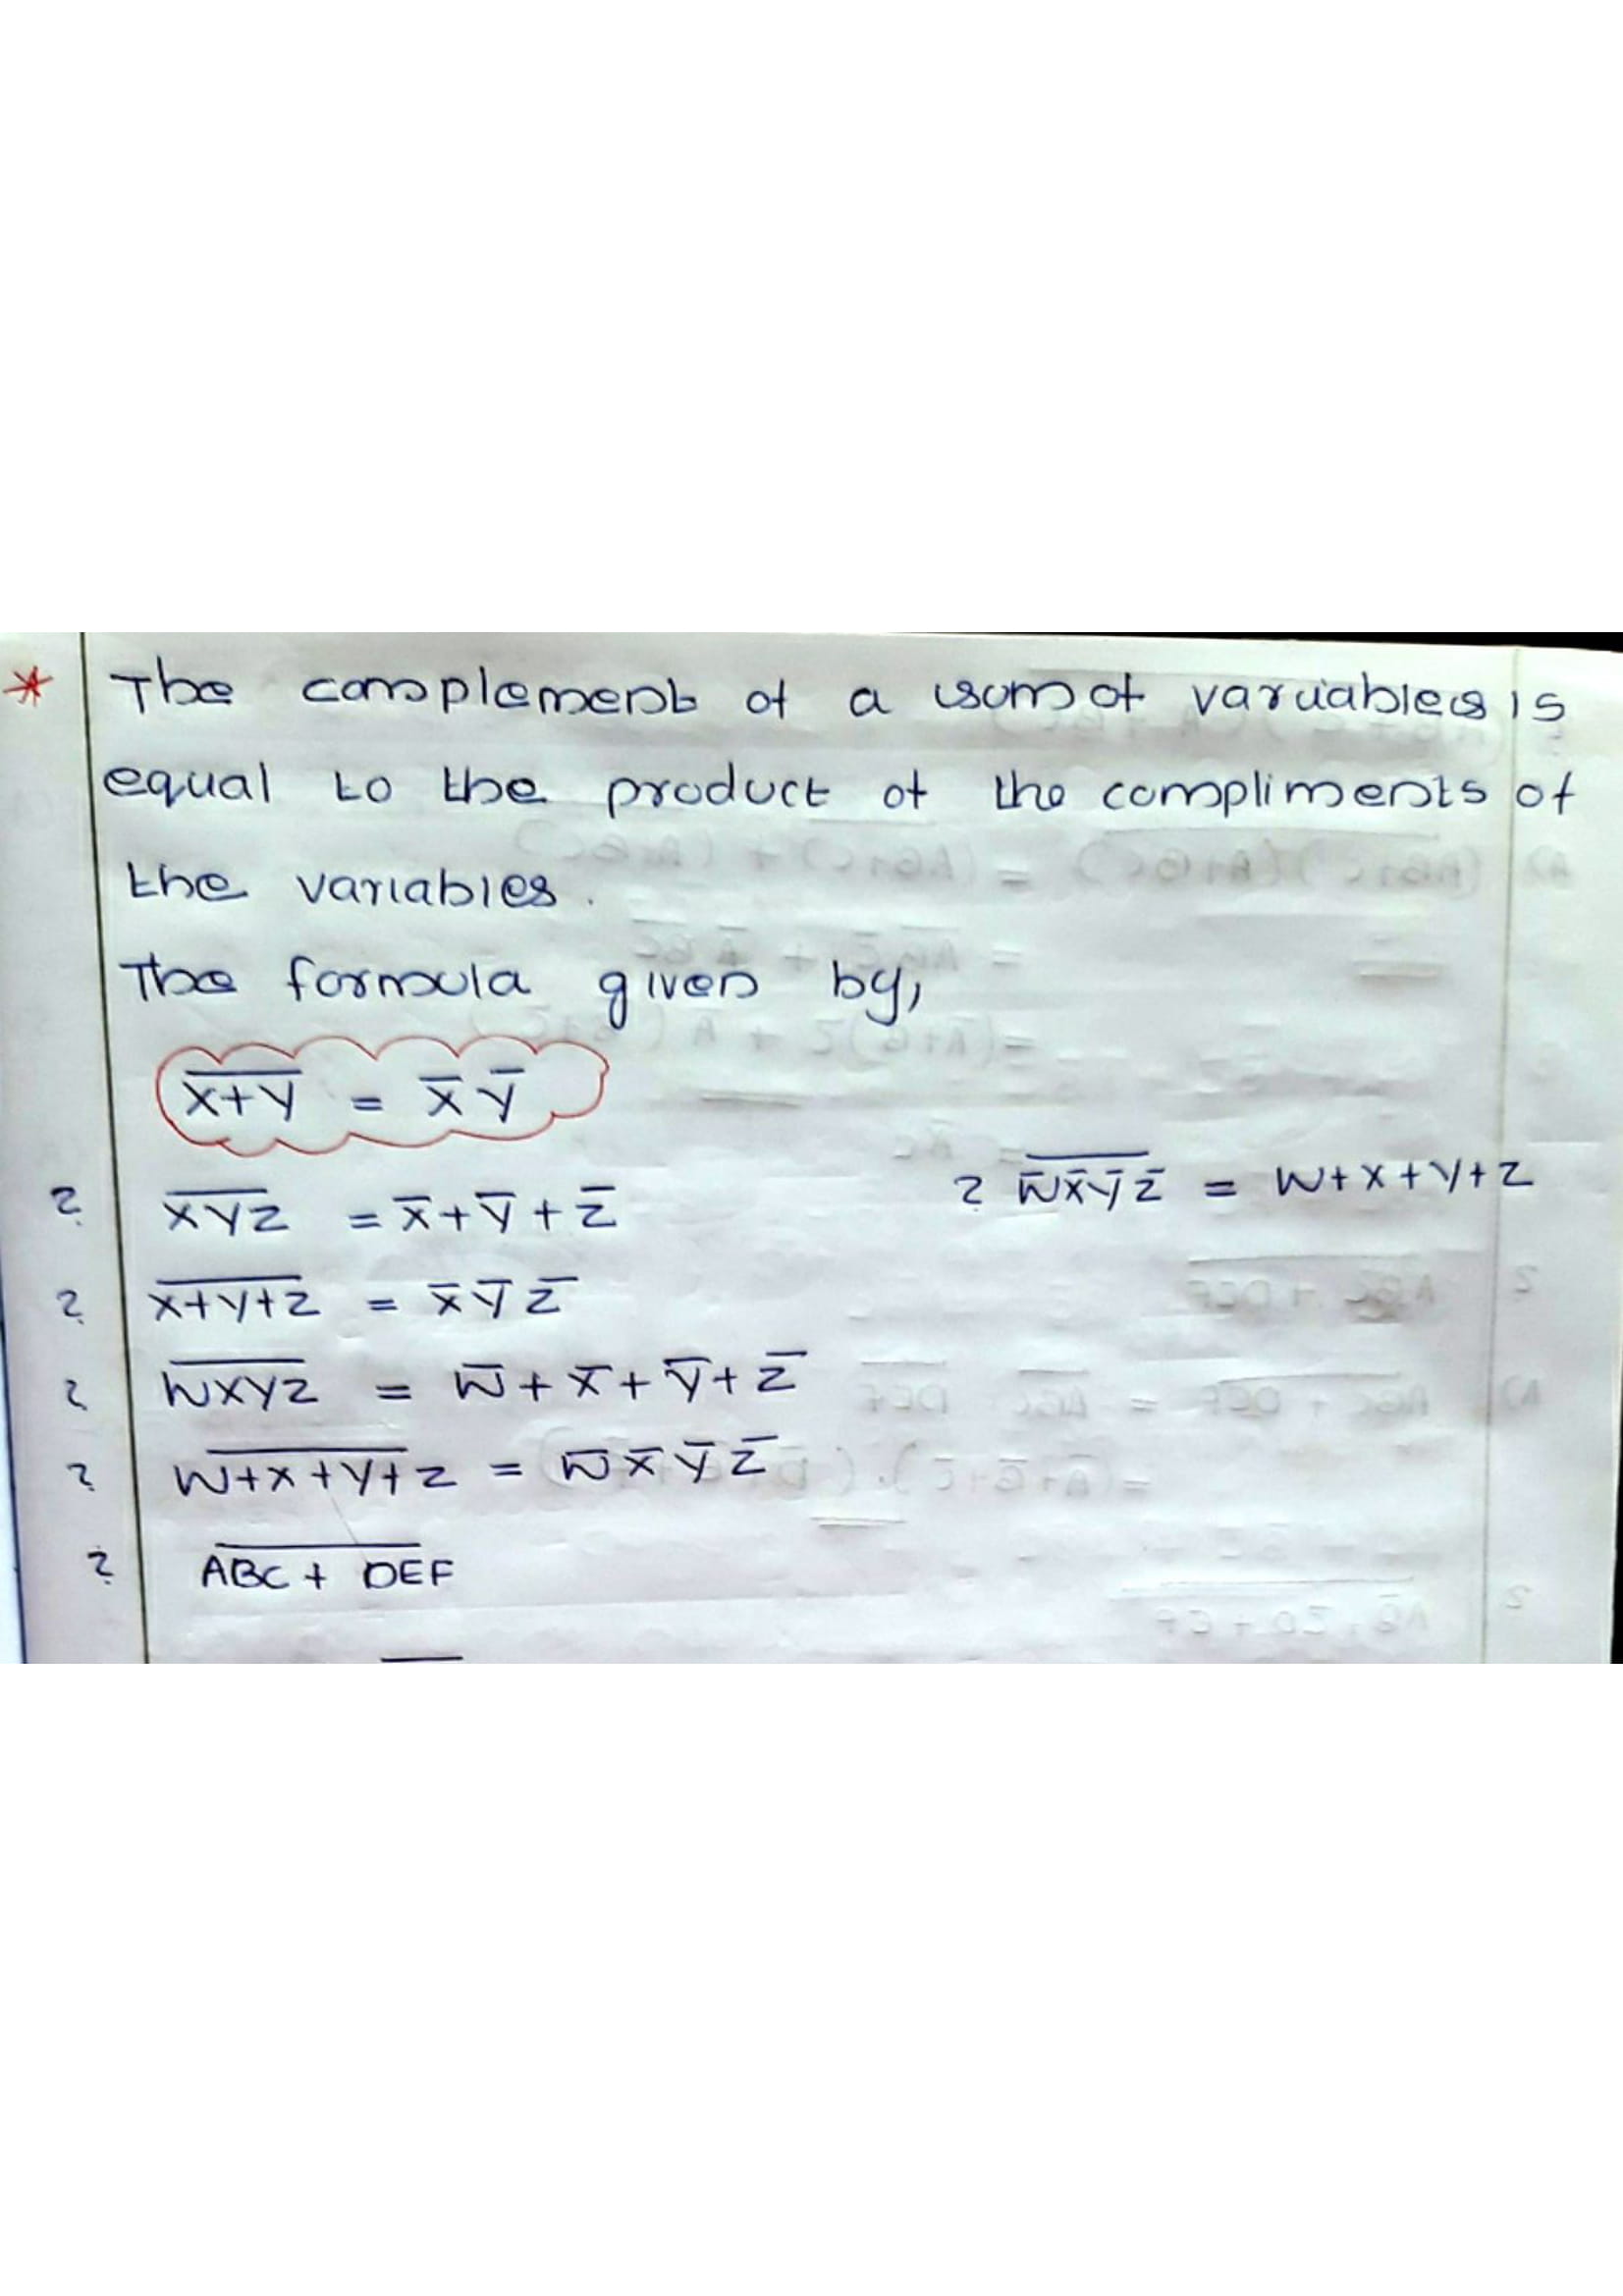 * The complement of a sum of variables is
equal to the product of the compliments of
the variables.
The formula given by,
X̅+̅Y̅ = X̅ Y̅
? X̅Y̅Z̅ = X̅+Y̅+Z̅
? W̅̅X̅̅Y̅̅Z̅̅ = W+X+Y+Z
? X̅+̅Y̅+̅Z̅ = X̅ Y̅ Z̅
? W̅X̅Y̅Z̅ = W̅+X̅+Y̅+Z̅
? W̅+̅X̅+̅Y̅+̅Z̅ = W̅ X̅ Y̅ Z̅
? A̅B̅C̅ ̅+̅ ̅D̅E̅F̅